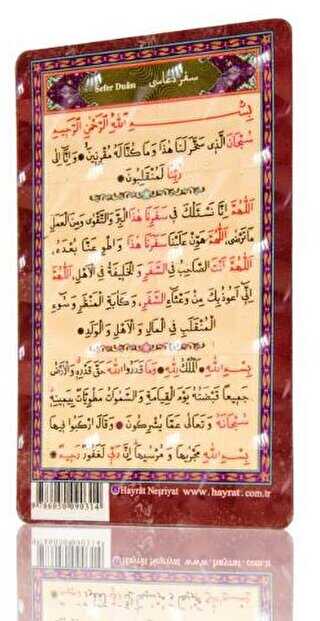 Sefer Duâsı سفر دعاسی
بِسْمِ اللّٰهِ الرَّحْمٰنِ الرَّحِيمِ
سُبْحَانَ الَّذِي سَخَّرَ لَنَا هٰذَا وَمَا كُنَّا لَهُ مُقْرِنِينَ ۞ وَإِنَّا إِلٰى
رَبِّنَا لَمُنْقَلِبُونَ ۞
اَللّٰهُمَّ اِنَّا نَسْئَلُكَ فِي سَفَرِنَا هٰذَا الْبِرَّ وَالتَّقْوٰى وَمِنَ الْعَمَلِ
مَا تَرْضٰى، اَللّٰهُمَّ هَوِّنْ عَلَيْنَا سَفَرَنَا هٰذَا وَاطْوِ عَنَّا بُعْدَهُ،
اَللّٰهُمَّ اَنْتَ الصَّاحِبُ فِي السَّفَرِ وَالْخَلِيفَةُ فِي الْاَهْلِ، اَللّٰهُمَّ
اِنِّي اَعُوذُ بِكَ مِنْ وَعْثَاءِ السَّفَرِ، وَكَآبَةِ الْمَنْظَرِ وَسُوءِ
الْمُنْقَلَبِ فِي الْمَالِ وَالْاَهْلِ وَالْوَلَدِ ۞
بِسْمِ اللّٰهِ ۞ اَلْمُلْكُ لِلّٰهِ ۞ وَمَا قَدَرُوا اللّٰهَ حَقَّ قَدْرِهِ وَالْاَرْضُ
جَمِيعًا قَبْضَتُهُ يَوْمَ الْقِيَامَةِ وَالسَّمٰوَاتُ مَطْوِيَّاتٌ بِيَمِينِهِ
سُبْحَانَهُ وَتَعَالٰى عَمَّا يُشْرِكُونَ ۞ وَقَالَ ارْكَبُوا فِيهَا
بِسْمِ اللّٰهِ مَجْرٰيهَا وَمُرْسٰيهَا اِنَّ رَبِّي لَغَفُورٌ رَحِيمٌ ۞
Hayrât Neşriyat www.hayrat.com.tr
9 786050 090314